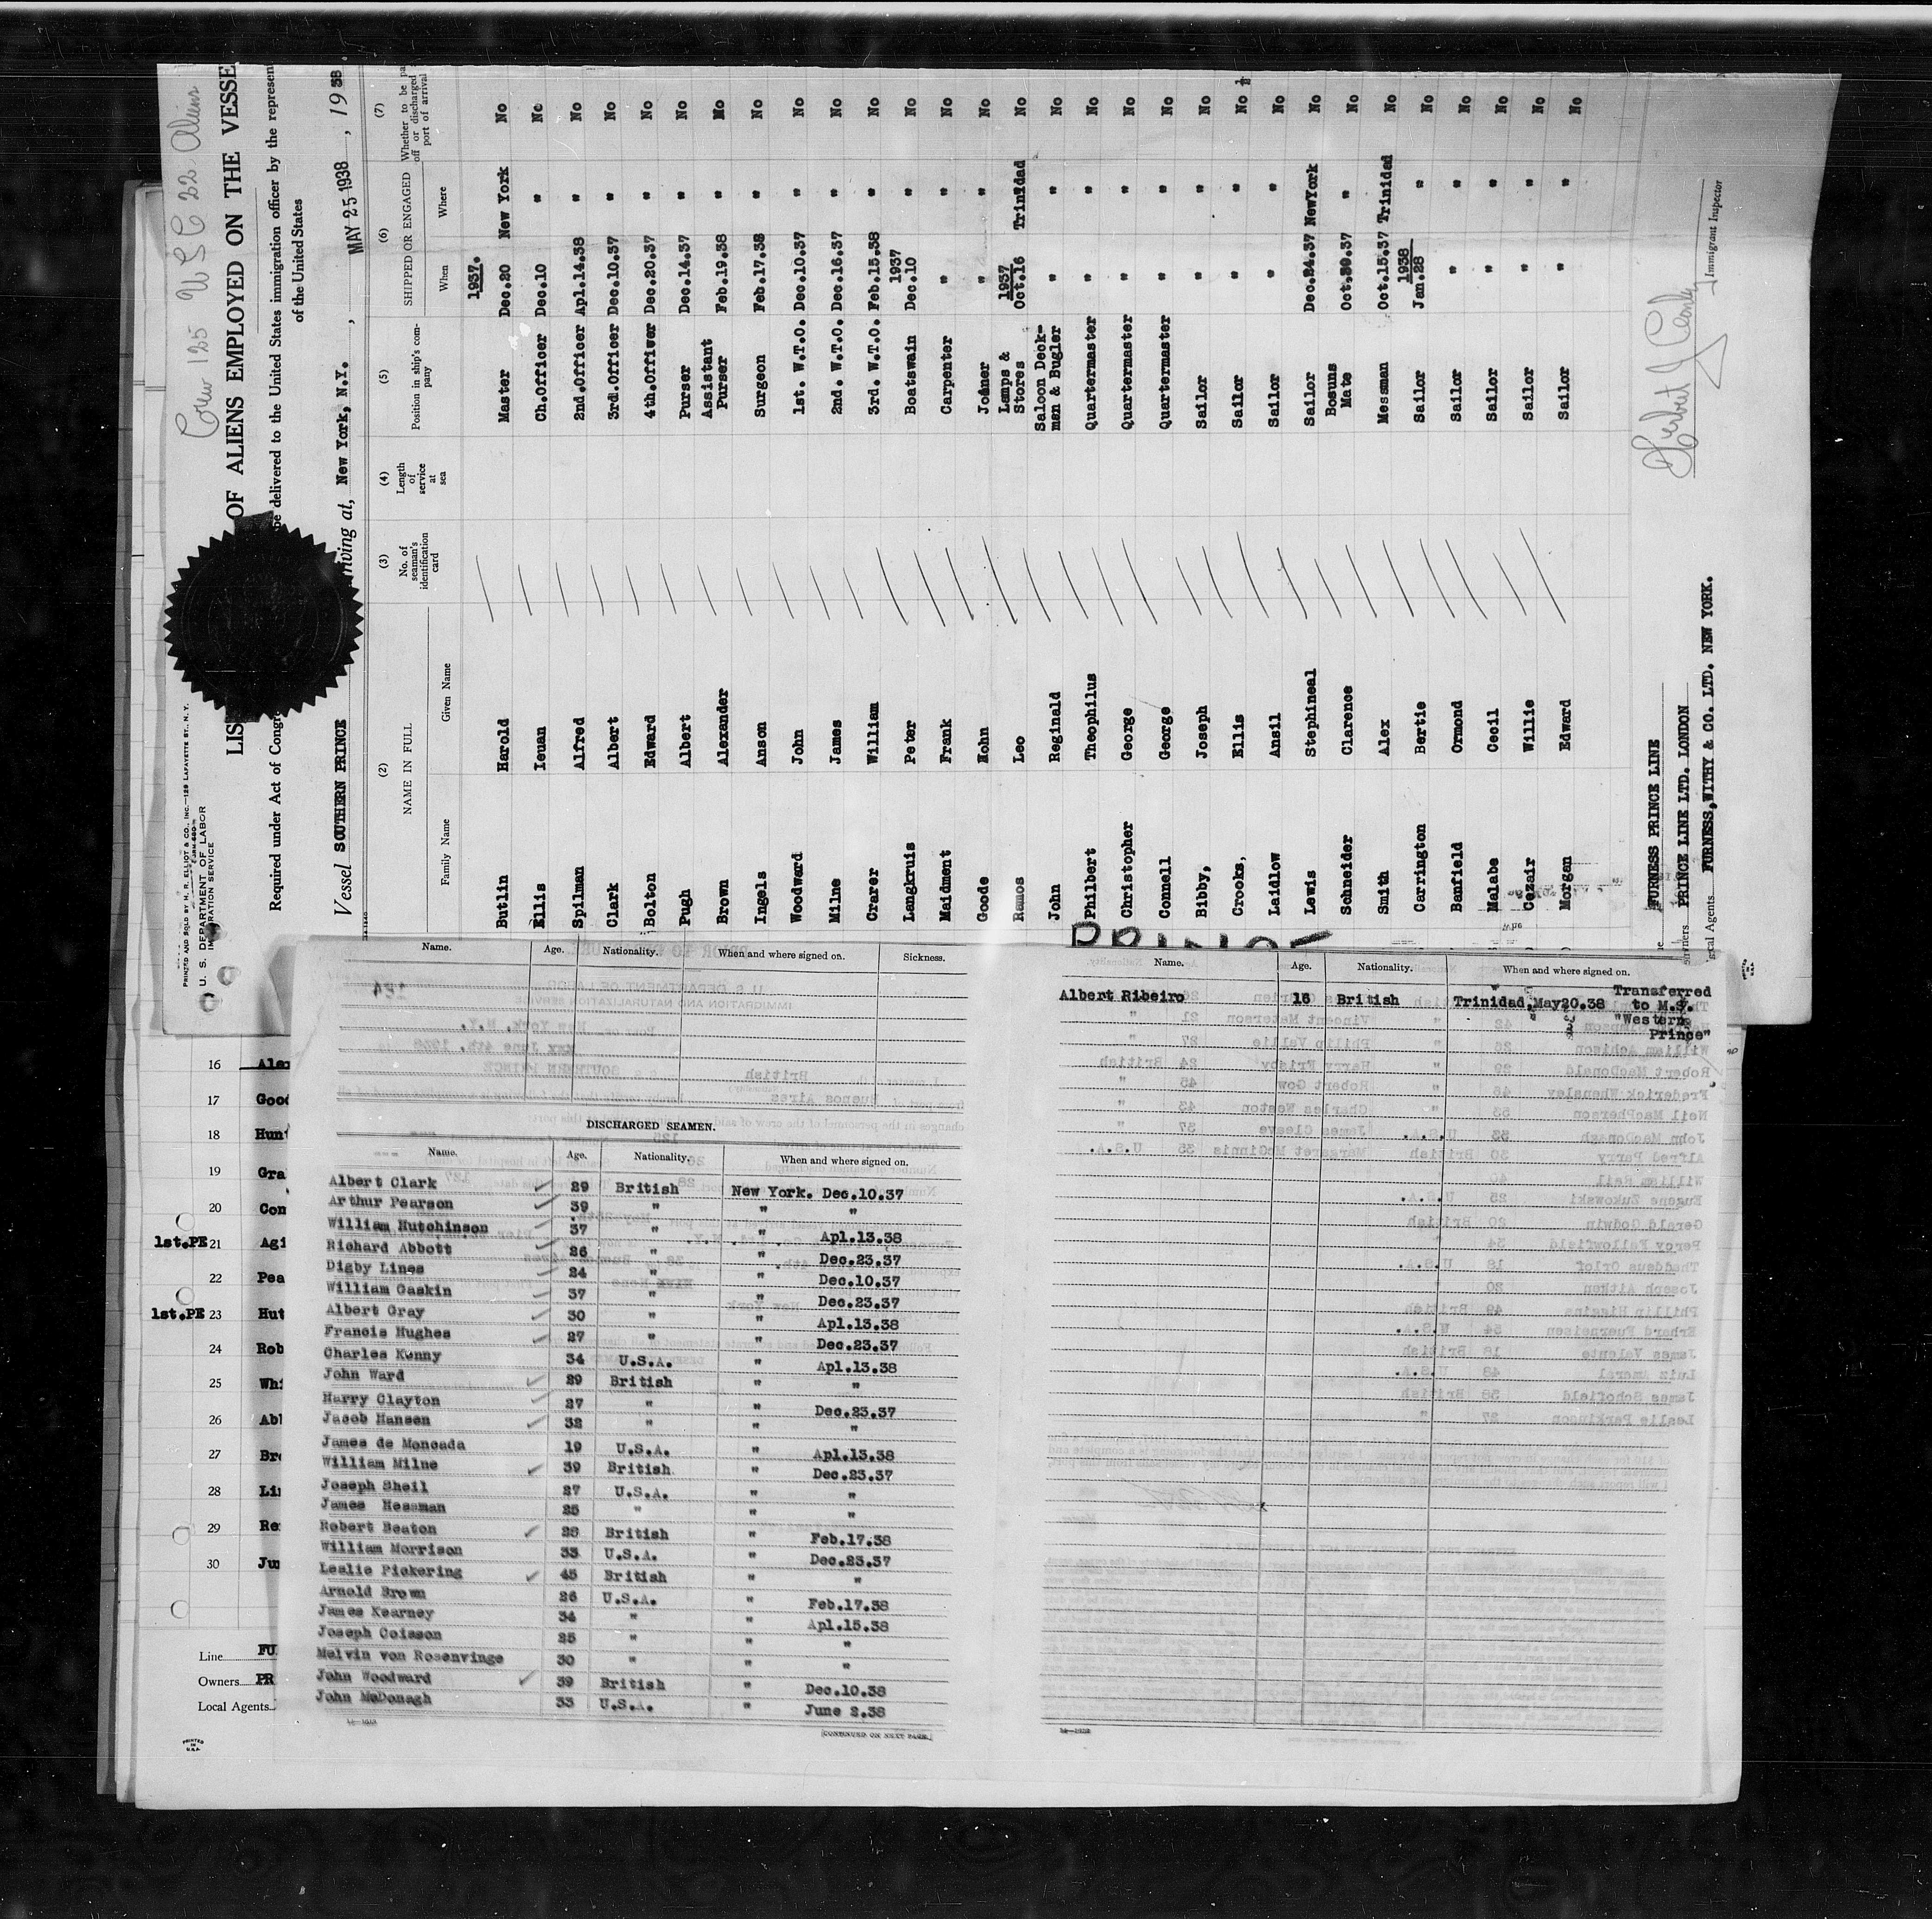 Crew 125 USC 22 Aliens
PRINTED AND SOLD BY H. R. ELLIOT & CO., INC.—129 LAFAYETTE ST., N. Y.
U. S. DEPARTMENT OF LABOR
IMMIGRATION SERVICE
LIS OF ALIENS EMPLOYED ON THE VESSE
Required under Act of Congre be delivered to the United States immigration officer by the represen
of the United States
Vessel SOUTHERN PRINCE iving at, New York, N.Y. , MAY 25 1938 , 19 38
(2) (3) (4) (5) (6) (7)
NAME IN FULL No. of seaman's identification card Length of service at sea Position in ship's company SHIPPED OR ENGAGED Whether to be pa off or discharged port of arrival
Family Name Given Name When Where
1937.
Butlin Harold Master Dec.20 New York No
Ellis Ieuan Ch.Officer Dec.10 " No
Spilman Alfred 2nd.Officer Apl.14.38 " No
Clark Albert 3rd.Officer Dec.10.37 " No
Bolton Edward 4th.Offiver Dec.20.37 " No
Pugh Albert Purser Dec.14.37 " No
Brown Alexander Assistant Purser Feb.19.38 " No
Ingels Anson Surgeon Feb.17.38 " No
Woodward John 1st. W.T.O. Dec.10.37 " No
Milne James 2nd. W.T.O. Dec.16.37 " No
Crarer William 3rd. W.T.O. Feb.15.38 " No
1937
Langkruis Peter Boatswain Dec.10 " No
Maidment Frank Carpenter " " No
Goode Hohn Joiner " " No
1937
Ramos Leo Lamps & Stores Oct.16 Trinidad No
John Reginald Saloon Deck-man & Bugler " " No
Philbert Theophilus Quartermaster " " No
Christopher George Quartermaster " " No
Connell George Quartermaster " " No
Bibby, Joseph Sailor " " No
Crooks, Ellis Sailor " " No
Laidlow Ansil Sailor " " No
Lewis Stephineal Sailor Dec.24.37 NewYork No
Schneider Clarence Bosuns Mate Oct.30.37 " No
Smith Alex Messman Oct.15.37 Trinidad No
1938
Carrington Bertie Sailor Jan.28 " No
Banfield Ormond Sailor " " No
Malabe Cecil Sailor " " No
Cezair Willie Sailor " " No
Morgan Edward Sailor " " No
FURNESS PRINCE LINE
wners PRINCE LINE LTD. LONDON
cal Agents FURNESS,WITHY & CO. LTD. NEW YORK.
Immigrant Inspector
PRINCE
Name. Age. Nationality. When and where signed on. Sickness.
DISCHARGED SEAMEN.
Name. Age. Nationality. When and where signed on.
Albert Clark 29 British New York. Dec.10.37
Arthur Pearson 39 " " "
William Hutchinson 37 " " Apl.13.38
Richard Abbott 26 " " Dec.23.37
Digby Lines 24 " " Dec.10.37
William Gaskin 37 " " Dec.23.37
Albert Gray 30 " " Apl.13.38
Francis Hughes 27 " " Dec.23.37
Charles Kenny 34 U.S.A. " Apl.13.38
John Ward 29 British " "
Harry Clayton 27 " " Dec.23.37
Jacob Hansen 32 " " "
James de Moncada 19 U.S.A. " Apl.13.38
William Milne 39 British " Dec.23.37
Joseph Sheil 27 U.S.A. " "
James Hessman 25 " " "
Robert Beaton 28 British " Feb.17.38
William Morrison 33 U.S.A. " Dec.23.37
Leslie Pickering 45 British " "
Arnold Brown 26 U.S.A. " Feb.17.38
James Kearney 34 " " Apl.15.38
Joseph Coisson 25 " " "
Melvin von Rosenvinge 30 " " "
John Woodward 39 British " Dec.10.38
John McDonagh 33 U.S.A. " June 2.38
[CONTINUED ON NEXT PAGE.]
Name. Age. Nationality. When and where signed on.
Albert Ribeiro 16 British Trinidad,May20.38 Transferred
to M.S.
"Western
Prince"
16 Ale
17 Good
18 Hunt
19 Gra
20 Con
1st.PE 21 Agi
22 Pea
1st.PE 23 Hut
24 Rob
25 Whi
26 Abl
27 Bro
28 Lin
29 Re
30 Ju
Line FU
Owners PR
Local Agents
PRINTED IN U.S.A.